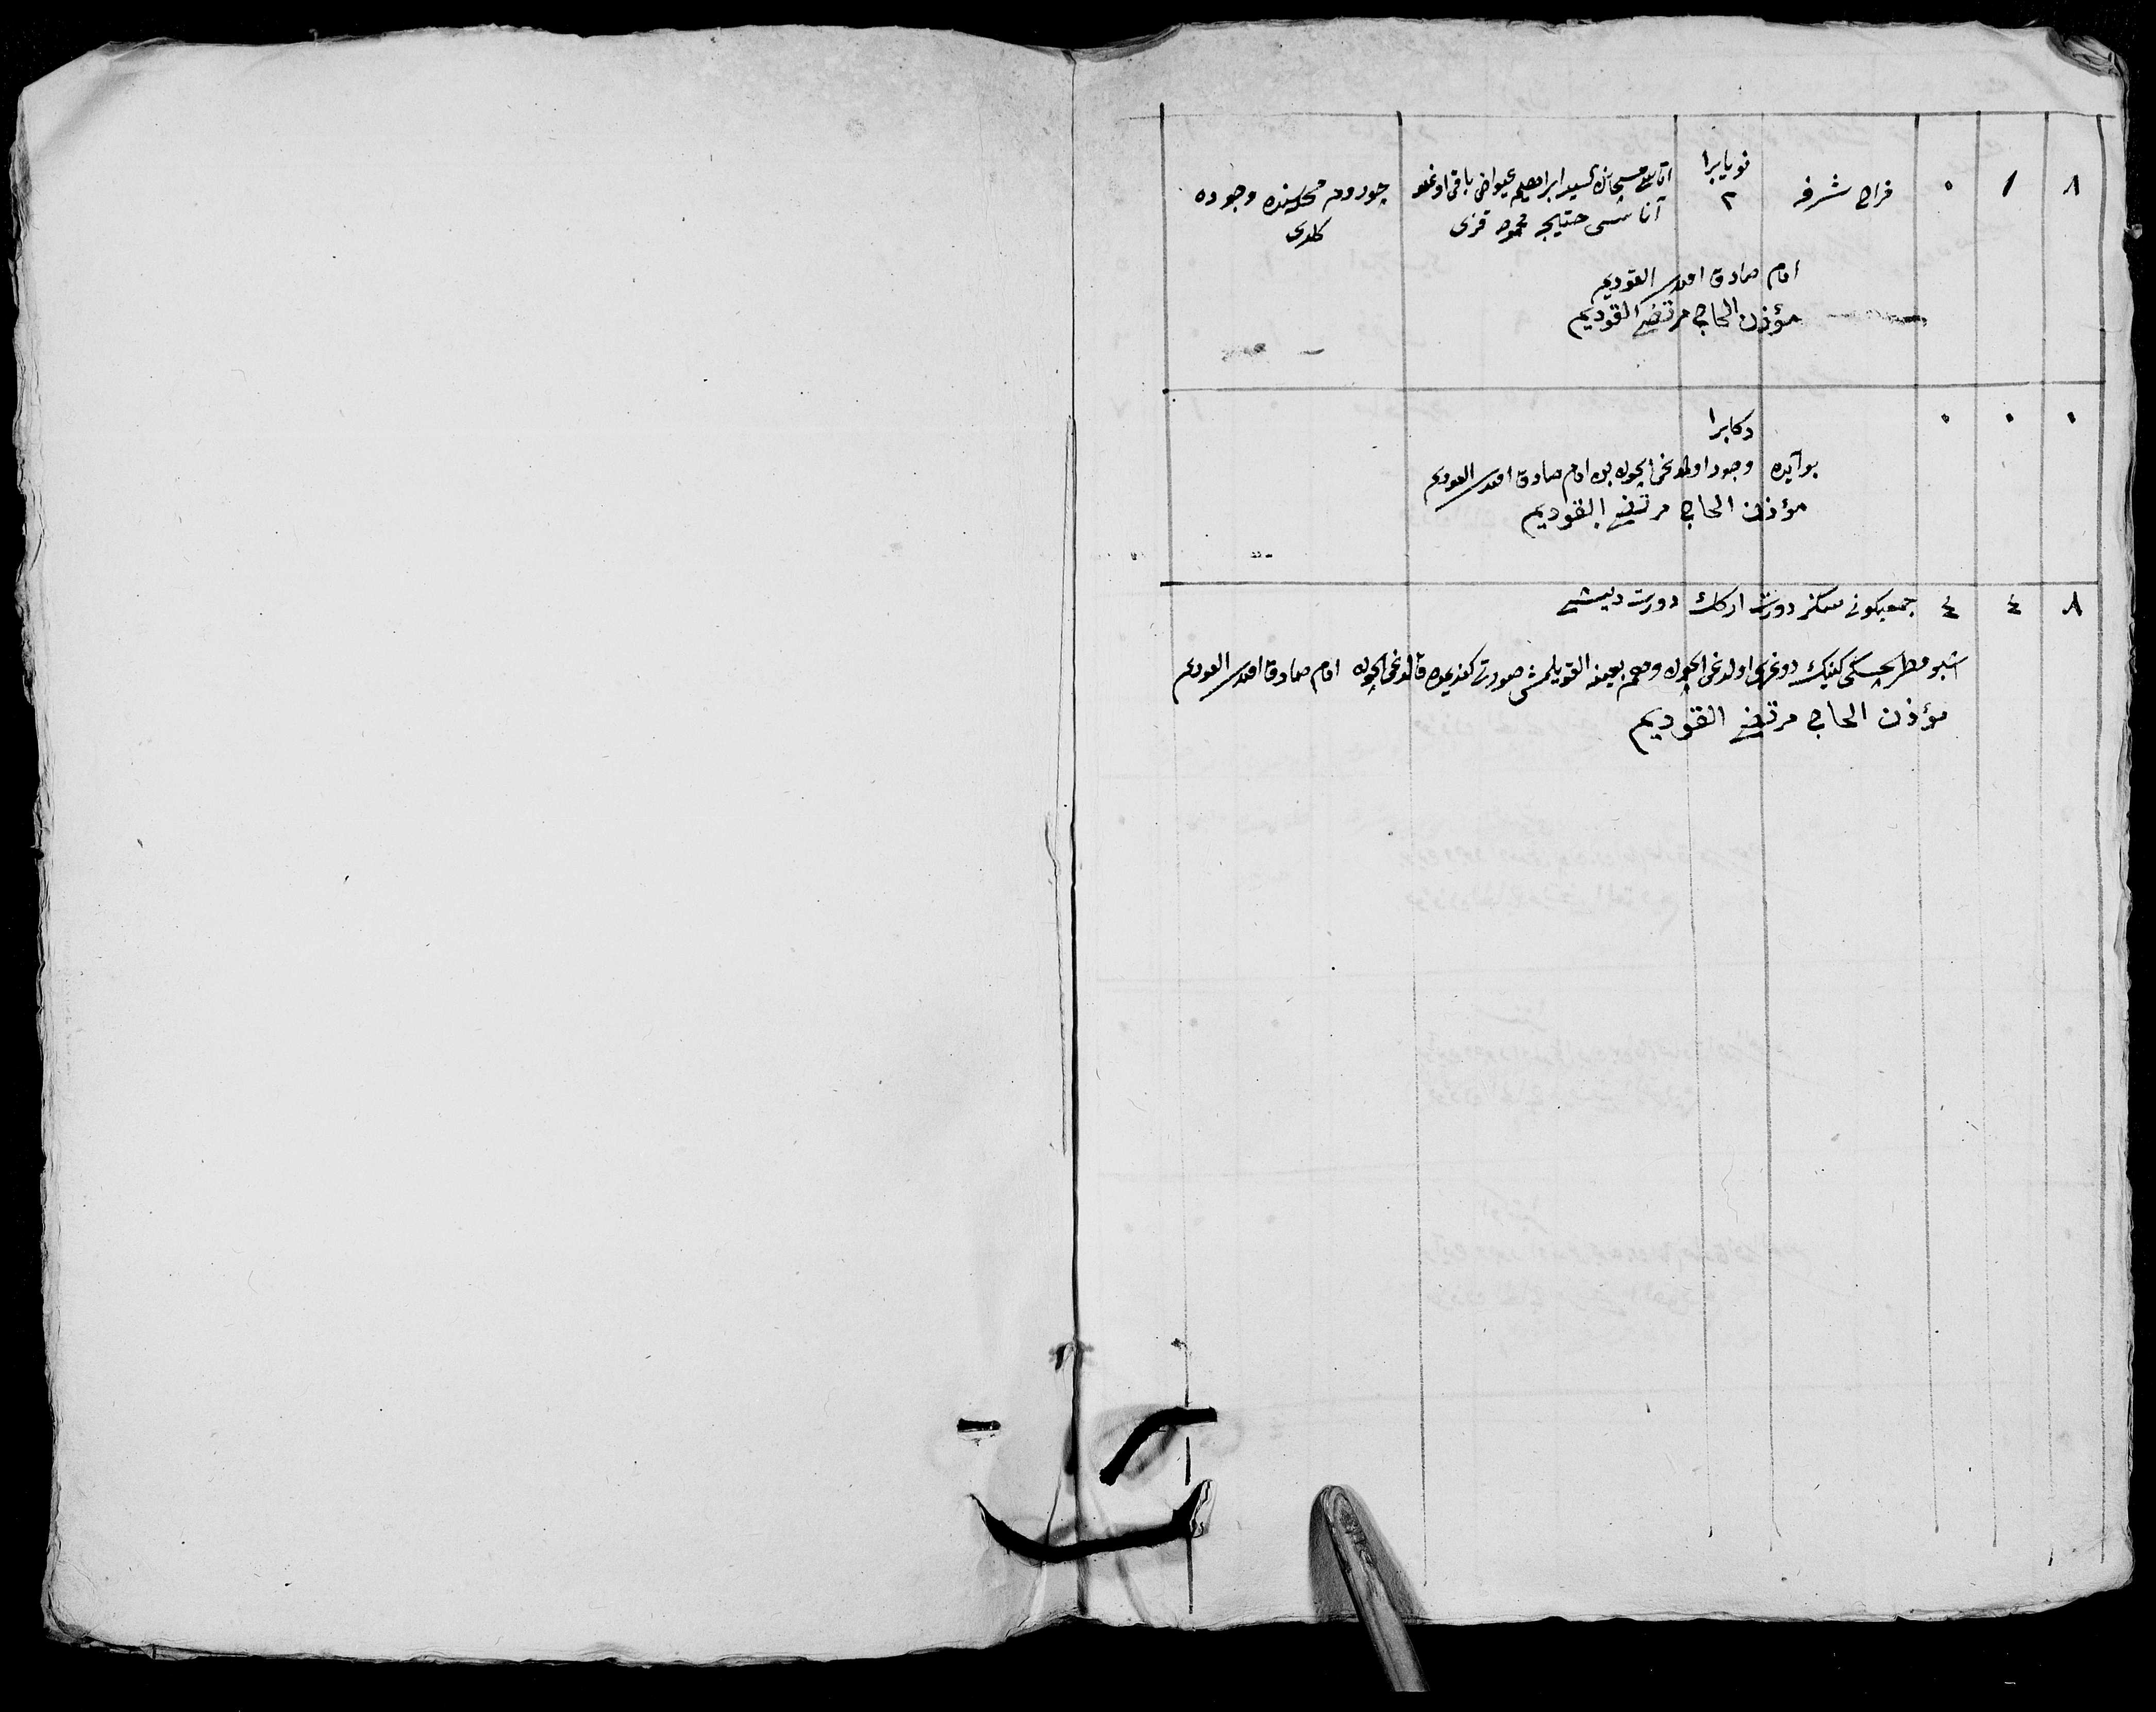 ٨ ١ ٠ فراح شرفه نویابرا ٢ اتاسی سید ابراهیم عیواض باقی اوغلو
آناسی حتیجه محمود قزی
چورومه محله سنده وجوده
کلدی
امام صادق افندی القودیم
مؤذن الحاجی مرتضی القودیم
٠ ٠ ٠ دکابرا
بو آیده وجود اولمدغی ایچون بن امام صادق افندی القودیم
مؤذن الحاجی مرتضی القودیم
٨ ٤ ٤ جمعیکونی سکز دورت ارکك دورت دیشی
اشبو مطریچسکی کنیك دوغری اولدغی ایچون و هم بعینه القویلمش صورتی کندیمده قالدغی ایچون امام صادق افندی القودیم
مؤذن الحاجی مرتضی القودیم